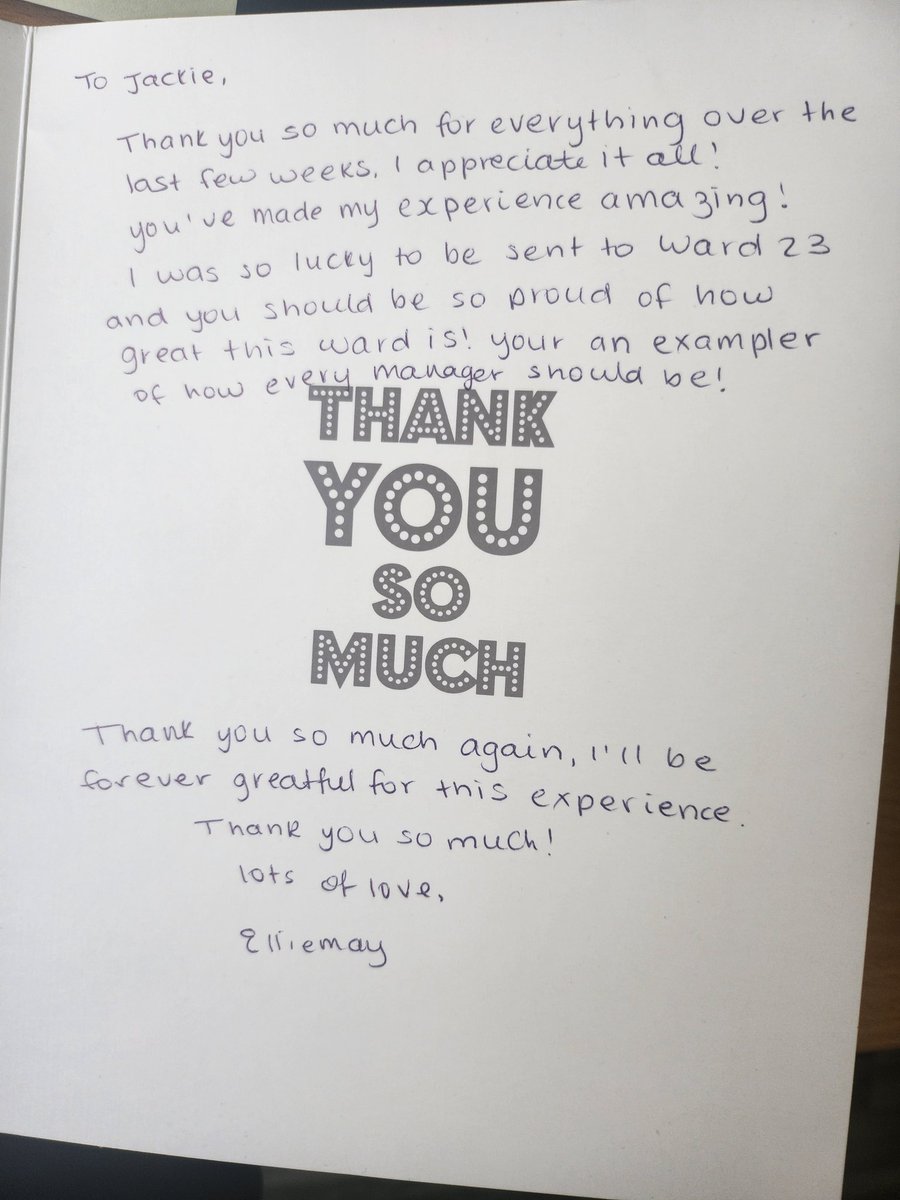 To Jackie,
Thank you so much for everything over the
last few weeks, I appreciate it all!
you've made my experience amazing!
I was so lucky to be sent to Ward 23
and you should be so proud of how
great this ward is! your an exampler
of how every manager should be!
THANK
YOU
SO
MUCH
Thank you so much again, I'll be
forever greatful for this experience.
Thank you so much!
lots of love,
Elliemay